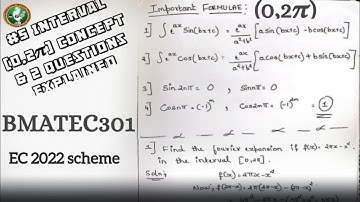 #5 INTERVAL
[0,2π] CONCEPT
& 2 QUESTIONS
EXPLAINED
BMATEC301
EC 2022 scheme
Important FORMULAE:
(0,2π)
1] ∫ e^ax sin(bx+c) = e^ax/(a²+b²) [a sin(bx+c) - b cos(bx+c)]
2] ∫ e^ax cos(bx+c) = e^ax/(a²+b²) [a cos(bx+c) + b sin(bx+c)]
3] sin2nπ = 0 , sin nπ = 0
4] Cosnπ = (-1)^n , Cos2nπ = (-1)^2n = 1
1] Find the fourier expansion if f(x) = 2πx - x²
in the interval [0,2π].
Soln:
f(x) = 2πx - x²
Now, f(2π-x) = 2π(2π-x) - (2π-x)²